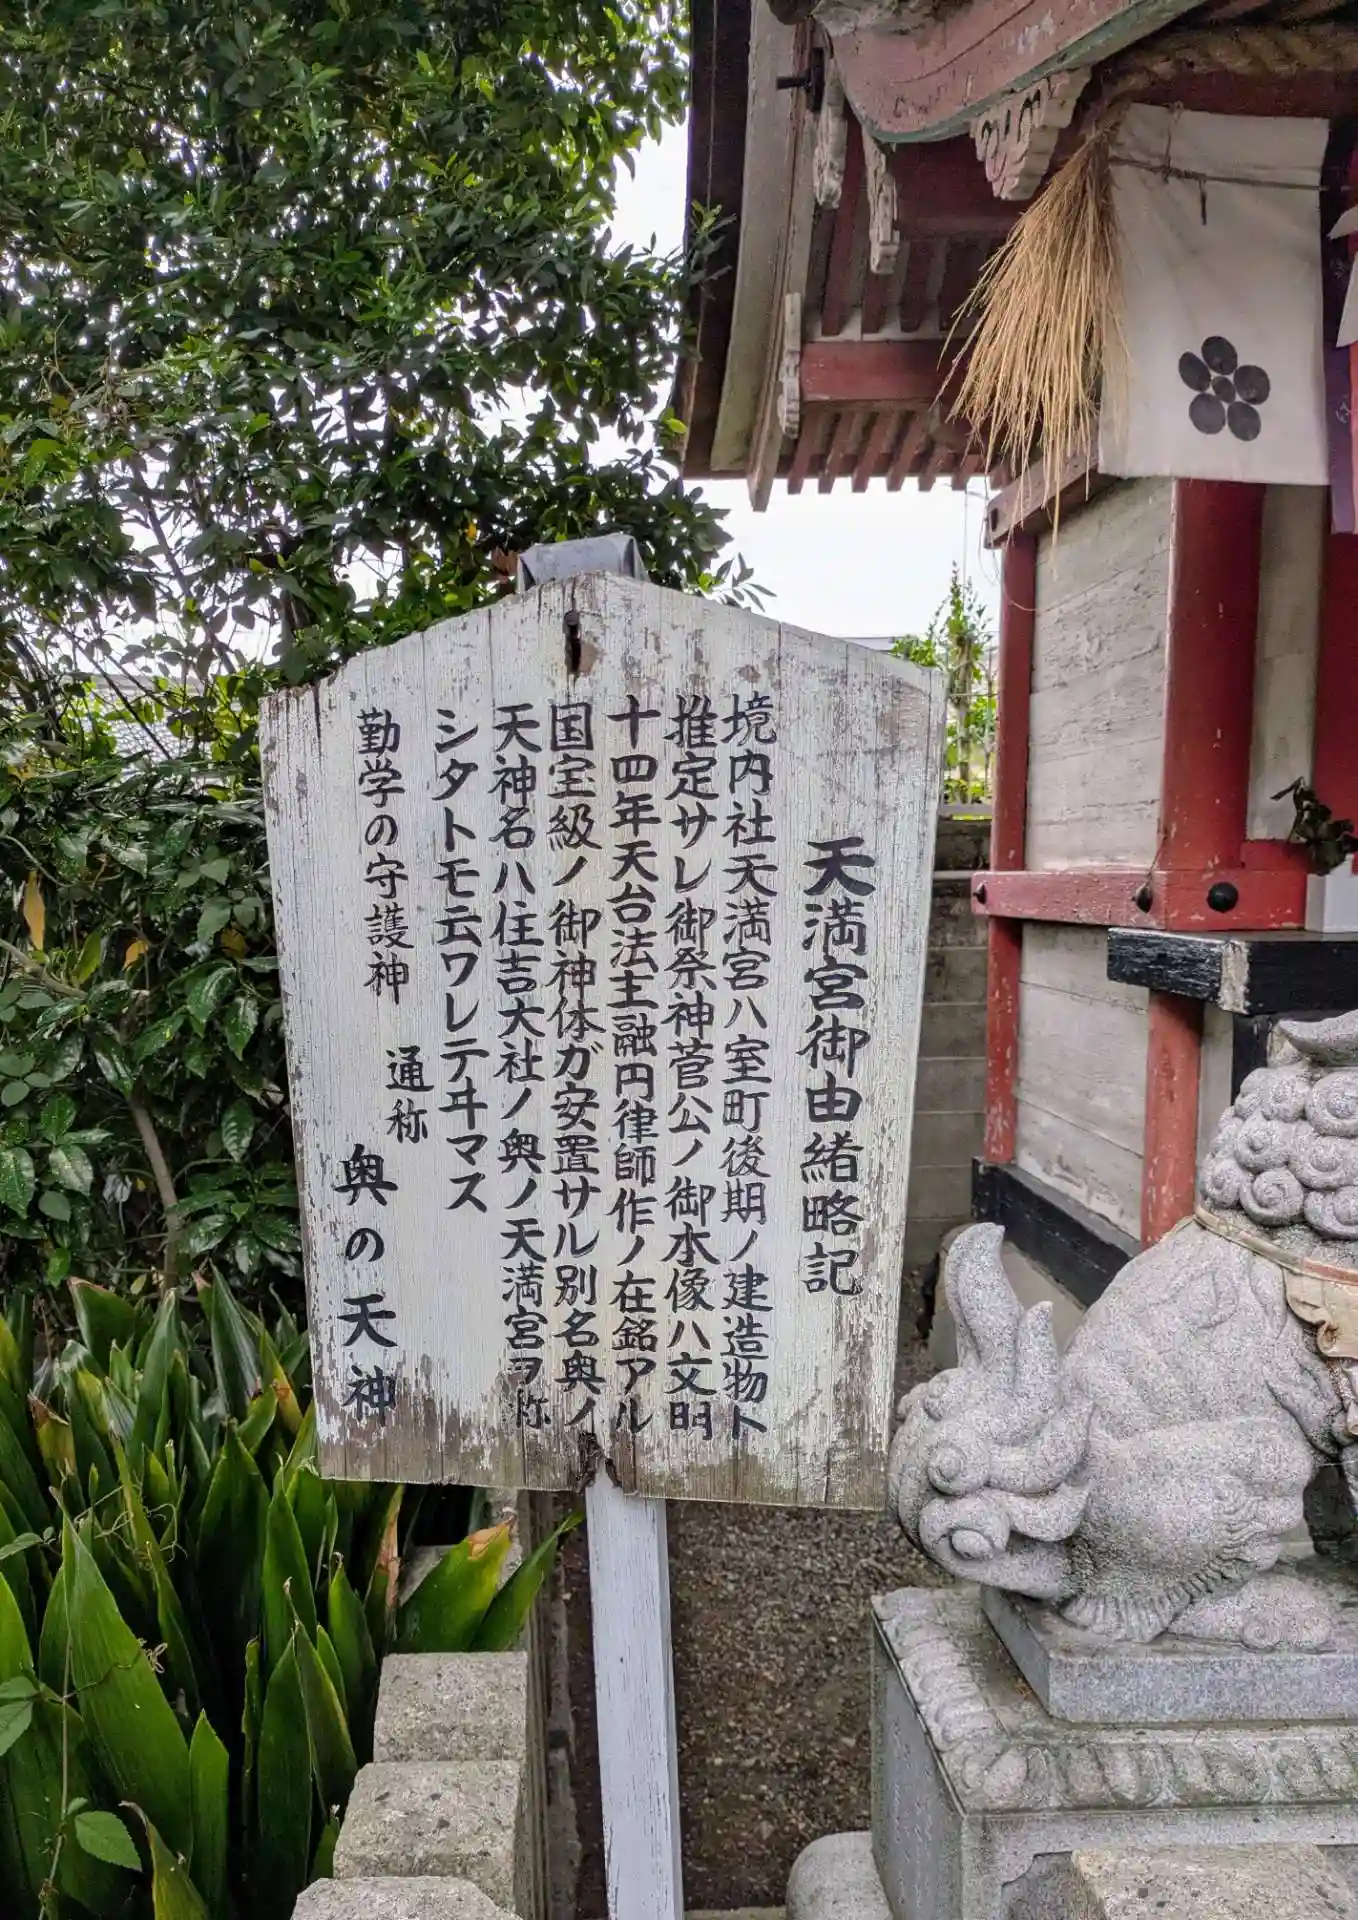 天満宮御由緒略記
境内社天満宮ハ室町後期ノ建造物ト
推定サレ御祭神菅公ノ御木像ハ文明
十四年天台法主融円律師作ノ在銘アル
国宝級ノ御神体ガ安置サル別名奥ノ
天神名ハ住吉大社ノ奥ノ天満宮ヲ称
シタトモ云ワレテヰマス
勤学の守護神
通称
奥の天神